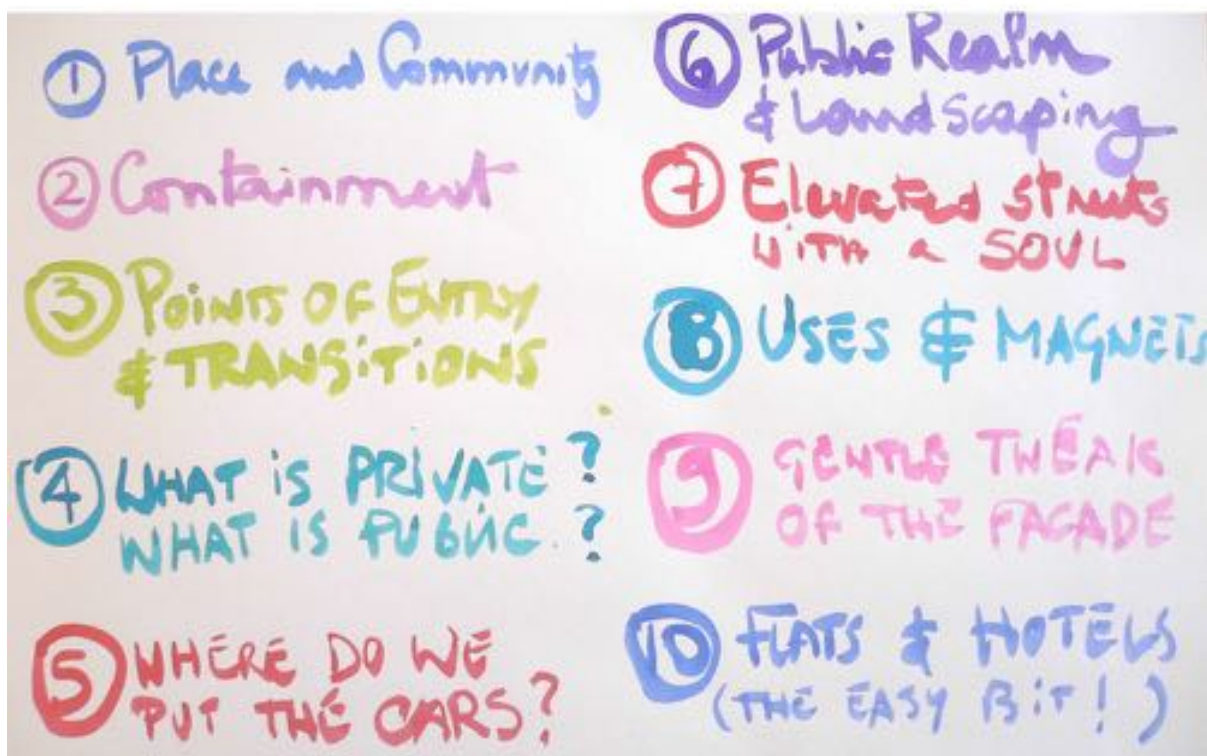 1 Place and Community
2 Containment
3 POINTS OF ENTRY
& TRANSITIONS
4 WHAT IS PRIVATE?
WHAT IS PUBLIC.?
5 WHERE DO WE
PUT THE CARS?
6 Public Realm
& Landscaping
7 Elevated streets
WITH a SOUL
8 USES & MAGNETS
9 GENTLE TWEAK
OF THE FACADE
10 FLATS & HOTELS
(THE EASY BIT!)